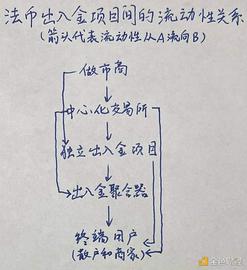 法币出入金项目间的流动性关系
(箭头代表流动性从A流向B)
做市商
中心化交易所
独立出入金项目
出入金聚合器
终端用户
(散户和商家)
金色财经